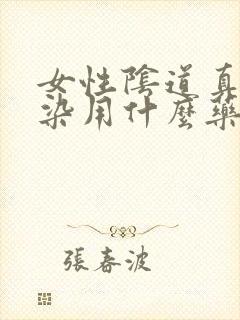 女性陰道真
染用什麼藥
張春波